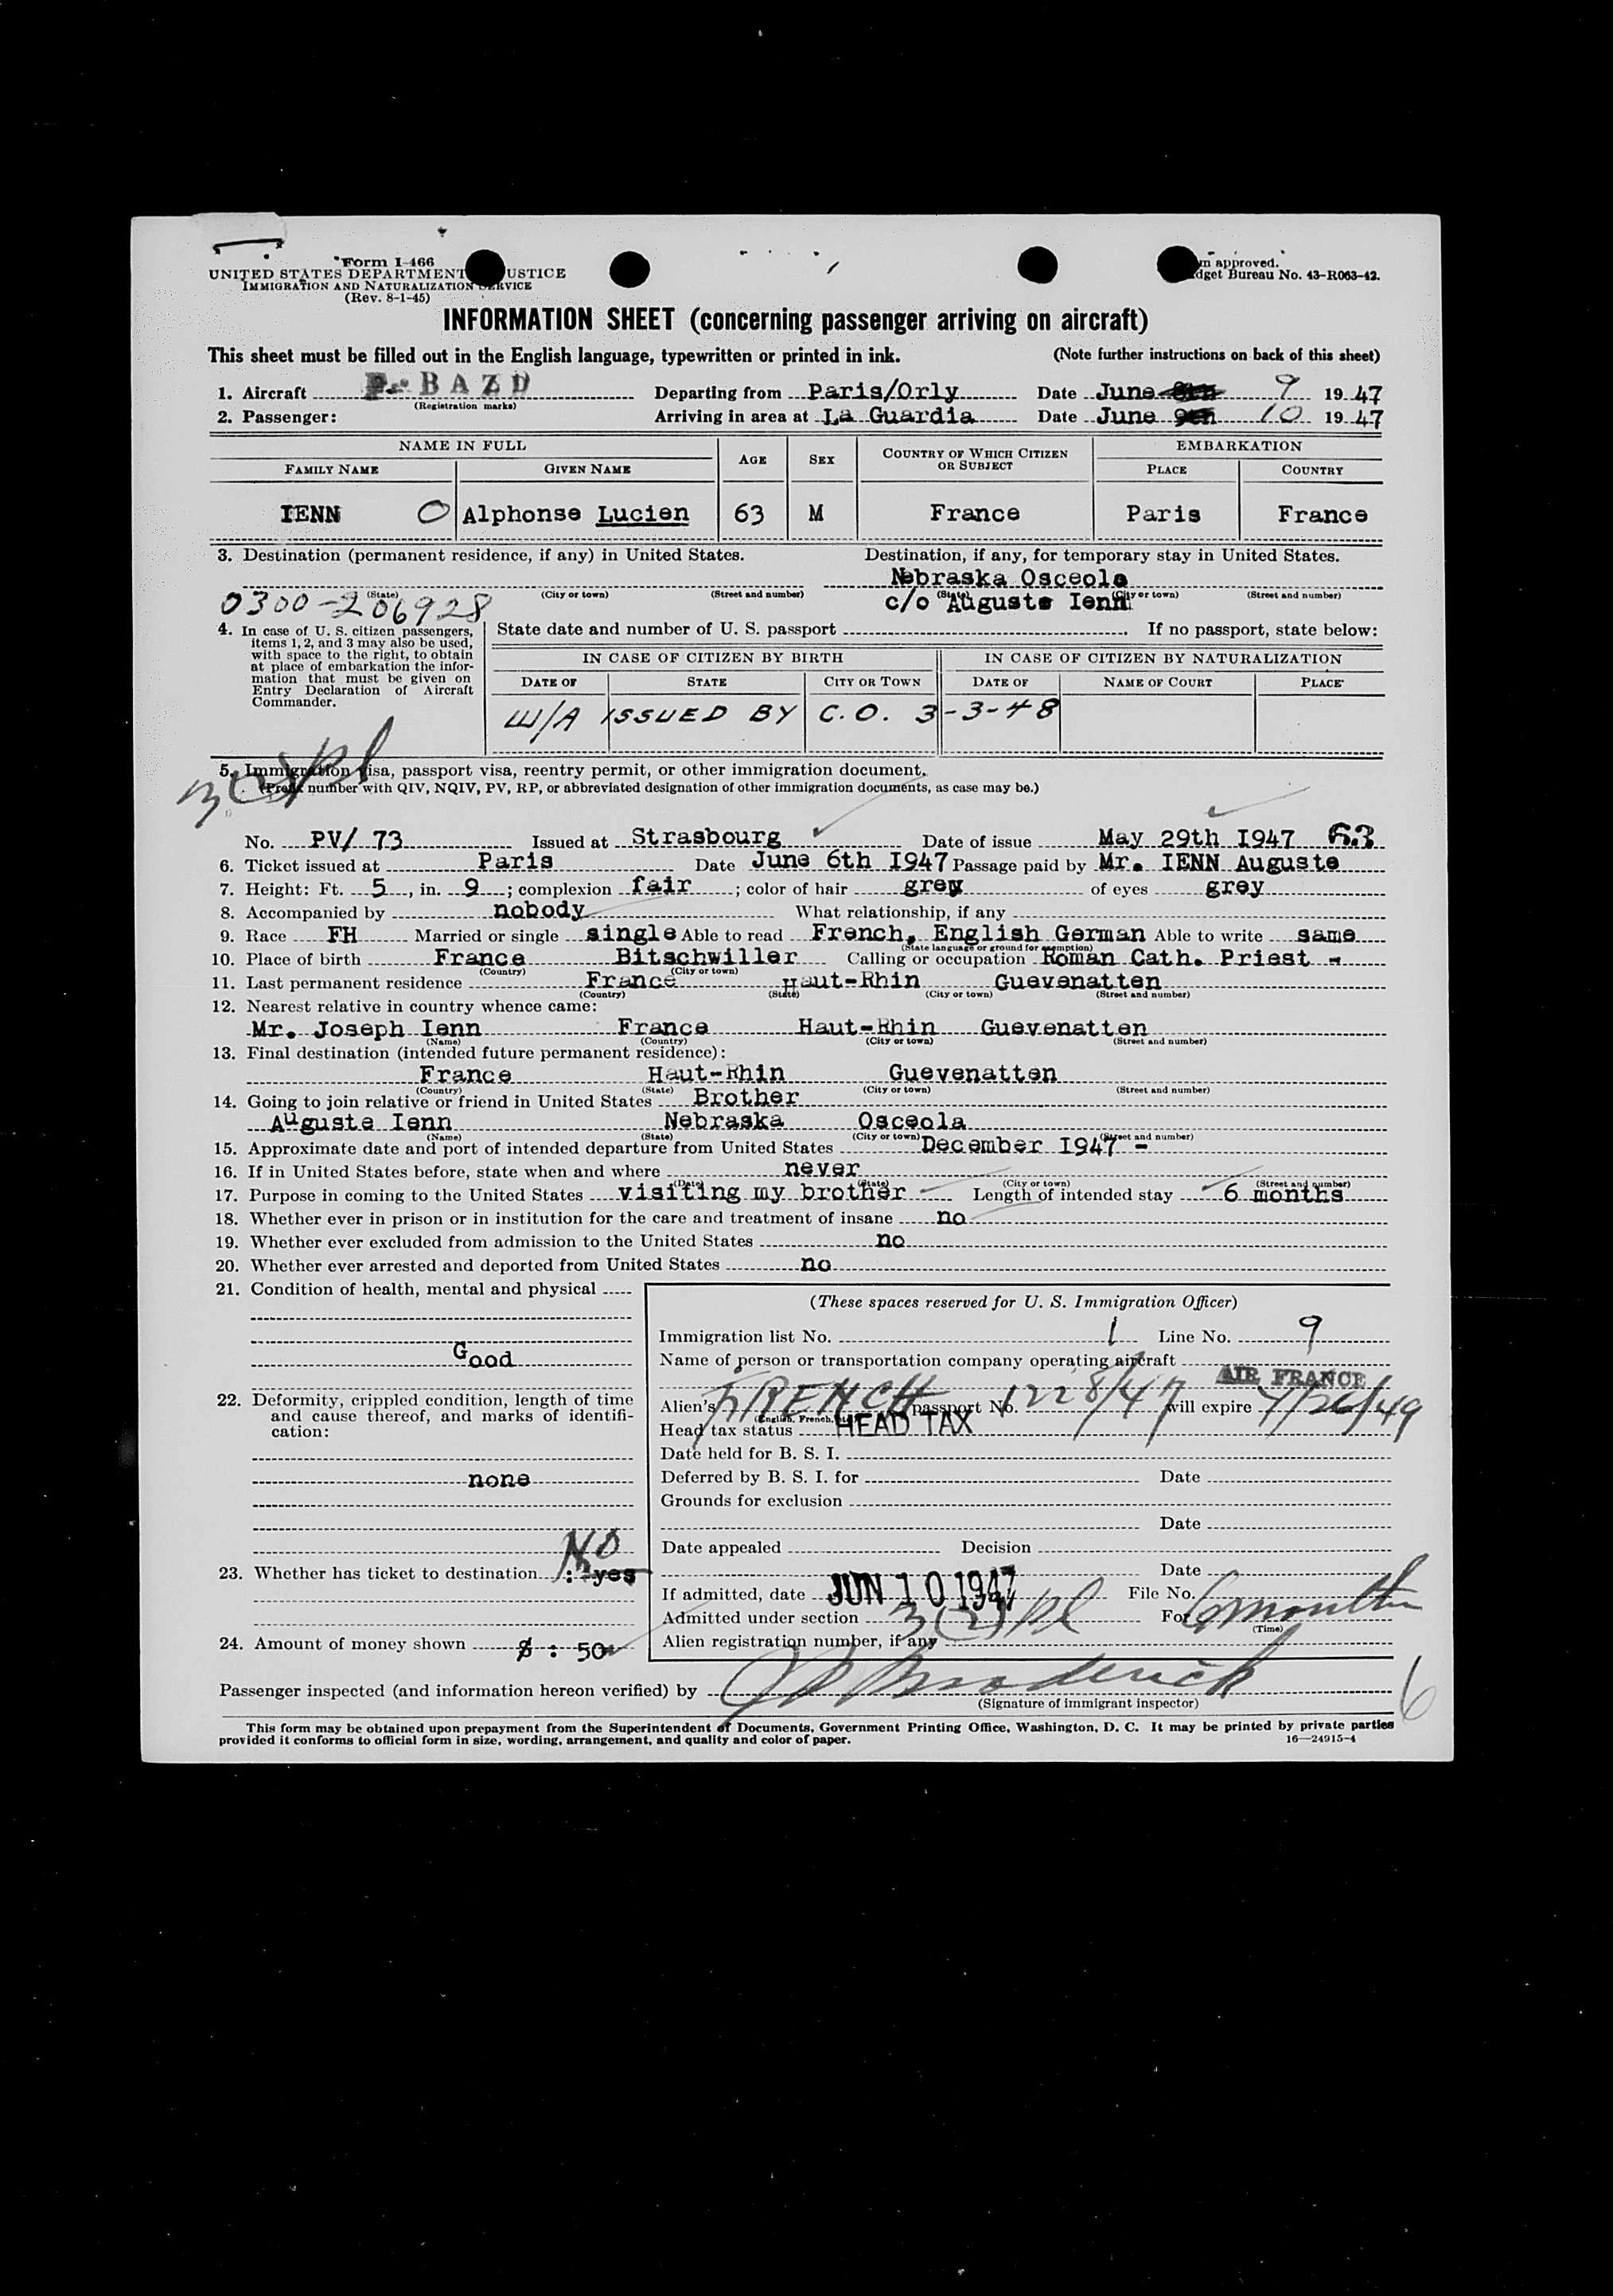 Form I-466
UNITED STATES DEPARTMENT USTICE
IMMIGRATION AND NATURALIZATION SERVICE
(Rev. 8-1-45)
m approved.
dget Bureau No. 43-R063-42.
INFORMATION SHEET (concerning passenger arriving on aircraft)
This sheet must be filled out in the English language, typewritten or printed in ink. (Note further instructions on back of this sheet)
1. Aircraft F-BAZD Departing from Paris/Orly Date June 8th 9 1947
(Registration marks)
2. Passenger: Arriving in area at La Guardia Date June 9th 10 1947
NAME IN FULL AGE SEX COUNTRY OF WHICH CITIZEN OR SUBJECT EMBARKATION
FAMILY NAME GIVEN NAME PLACE COUNTRY
IENN O Alphonse Lucien 63 M France Paris France
3. Destination (permanent residence, if any) in United States. Destination, if any, for temporary stay in United States.
Nebraska Osceola
(State) (City or town) (Street and number) (State) (City or town) (Street and number)
0300-206928 c/o Auguste Ienn
4. In case of U. S. citizen passengers, items 1, 2, and 3 may also be used, with space to the right, to obtain at place of embarkation the information that must be given on Entry Declaration of Aircraft Commander.
State date and number of U. S. passport If no passport, state below:
IN CASE OF CITIZEN BY BIRTH IN CASE OF CITIZEN BY NATURALIZATION
DATE OF STATE CITY OR TOWN DATE OF NAME OF COURT PLACE
W/A ISSUED BY C.O. 3-3-48
5. Immigration visa, passport visa, reentry permit, or other immigration document.
(Prefix number with QIV, NQIV, PV, RP, or abbreviated designation of other immigration documents, as case may be.)
No. PV/ 73 Issued at Strasbourg Date of issue May 29th I947 63
6. Ticket issued at Paris Date June 6th I947 Passage paid by Mr. IENN Auguste
7. Height: Ft. 5, in. 9; complexion fair; color of hair grey of eyes grey
8. Accompanied by nobody What relationship, if any
9. Race FH Married or single single Able to read French, English German Able to write same
(State language or ground for exemption)
10. Place of birth France Bitschwiller Calling or occupation Roman Cath. Priest -
(Country) (City or town)
11. Last permanent residence France Haut-Rhin Guevenatten
(Country) (State) (City or town) (Street and number)
12. Nearest relative in country whence came:
Mr. Joseph Ienn France Haut-Rhin Guevenatten
(Name) (Country) (City or town) (Street and number)
13. Final destination (intended future permanent residence):
France Haut-Rhin Guevenatten
(Country) (State) (City or town) (Street and number)
14. Going to join relative or friend in United States Brother
Auguste Ienn Nebraska Osceola
(Name) (State) (City or town) (Street and number)
15. Approximate date and port of intended departure from United States December I947 -
16. If in United States before, state when and where never
(Date) (State) (City or town) (Street and number)
17. Purpose in coming to the United States visiting my brother Length of intended stay 6 months
18. Whether ever in prison or in institution for the care and treatment of insane no
19. Whether ever excluded from admission to the United States no
20. Whether ever arrested and deported from United States no
21. Condition of health, mental and physical
Good
22. Deformity, crippled condition, length of time and cause thereof, and marks of identification:
none
NO
23. Whether has ticket to destination : yes
24. Amount of money shown $ : 50
(These spaces reserved for U. S. Immigration Officer)
Immigration list No. 1 Line No. 9
Name of person or transportation company operating aircraft
AIR FRANCE
Alien's FRENCH passport No. 1228/47 will expire 4/26/49
(English, French, etc.)
Head tax status HEAD TAX
Date held for B. S. I.
Deferred by B. S. I. for Date
Grounds for exclusion
Date
Date appealed Decision
Date
If admitted, date JUN 10 1947 File No.
Admitted under section 3(2) For 6 months
(Time)
Alien registration number, if any
Passenger inspected (and information hereon verified) by Broderick
(Signature of immigrant inspector)
6
This form may be obtained upon prepayment from the Superintendent of Documents, Government Printing Office, Washington, D. C. It may be printed by private parties
provided it conforms to official form in size, wording, arrangement, and quality and color of paper. 16—24915-4